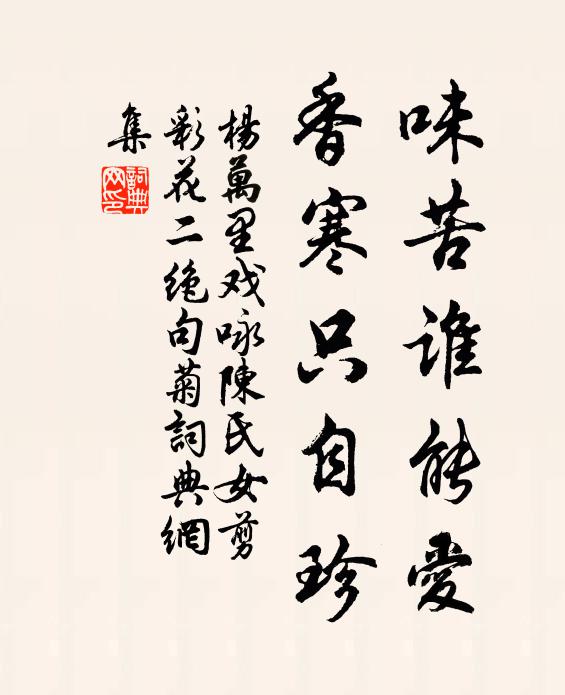 味苦谁能愛
香寒只自珍
楊萬里戏咏陳氏女剪
彩花二绝句菊詞典網
集
詞典
网印